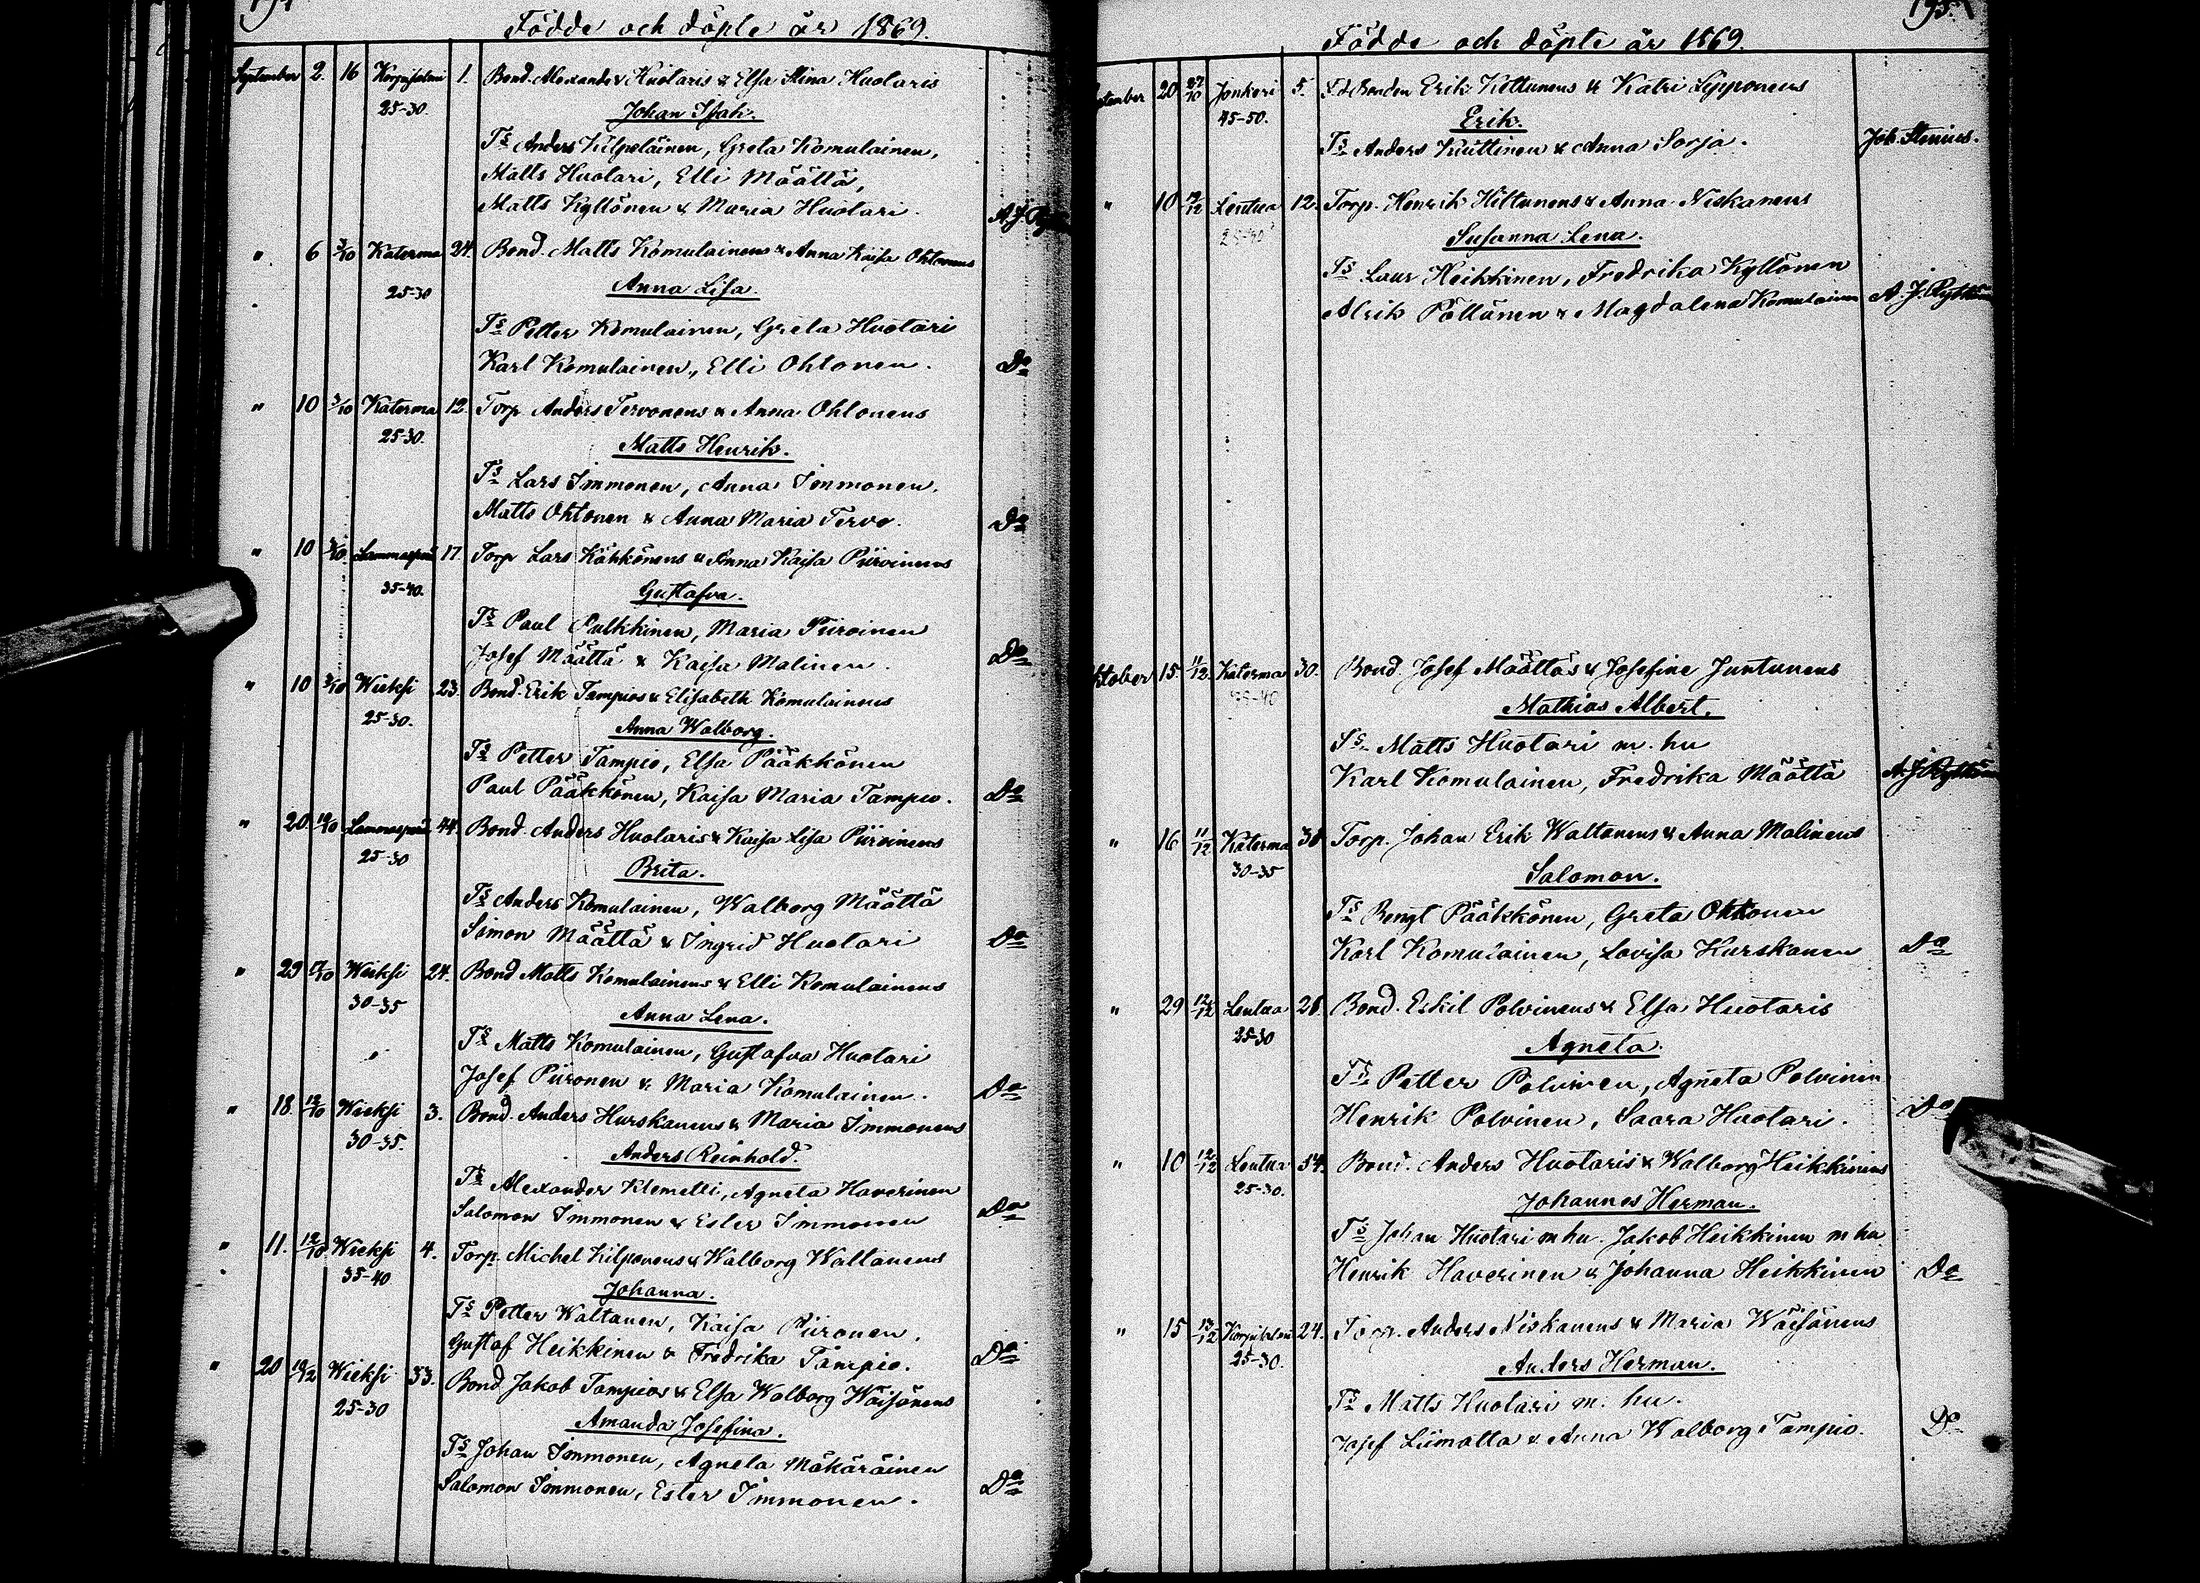 194
Födde och döpte år 1869.
September 2. 16 1. Bond. Alexander Huotaris & Elsa Stina Huotaris
25-30. Johan Isak.
Ts Anders Kilpeläinen, Greta Komulainen,
Matts Huotari, Elli Määttä,
Matts Kyllönen & Maria Huotari. A. J.
" 6 3/10 Katerma 24. Bond. Matts Komulainens & Anna Kaisa Ohtonens
25-30 Anna Lisa.
Ts Petter Komulainen, Greta Huotari
Karl Komulainen, Elli Ohtonen. Do
" 10 3/10 Katerma 12. Torp Anders Tervonens & Anna Ohtonens
25-30. Matts Henrik.
Ts Lars Immonen, Anna Immonen.
Matts Ohtonen & Anna Maria Tervo. Do
" 10 3/10 Lammasperä 17. Torp Lars Kähkönens & Anna Kajsa Piiroinens
35-40. Gustafva.
Ts Paul Pulkkinen, Maria Piiroinen
Josef Määttä & Kaisa Malinen. Do
" 10 3/10 Wieksi 23. Bond. Erik Tampios & Elisabeth Komulainens
25-30. Anna Walborg.
Ts Petter Tampio, Elsa Pääkkönen
Paul Pääkkönen, Kaisa Maria Tampio. Do
" 20 10/10 Lammasperä 44. Bond. Anders Huotaris & Kaisa Lisa Piiroinens
25-30 Brita.
Ts Anders Komulainen, Walborg Määttä
Simon Määttä & Ingrid Huotari Do
" 29 Wieksi 24. Bond Matts Komulainens & Elli Komulainens
30-35 Anna Lena.
Ts Matts Komulainen, Gustafva Huotari
Josef Piironen & Maria Komulainen. Do
" 18 12/10 Wieksi 3. Bond. Anders Hurskanens & Maria Immonens
30-35. Anders Reinhold.
Ts Alexander Klemetti, Agneta Haverinen
Salomon Immonen & Ester Immonen Do
" 11. 12/10 Wieksi 4. Torp. Michel Kilponens & Walborg Waltanens
35-40 Johanna.
Ts Petter Waltanen, Kaisa Piironen.
Gustaf Heikkinen & Fredrika Tampio. Do
" 20 10/12 Wieksi 33. Bond Jakob Tampios & Elsa Walborg Wäisänens
25-30 Amanda Josefina.
Ts Johan Immonen, Agneta Mäkäräinen
Salomon Immonen, Ester Immonen. Do
195.
Födde och döpte år 1869.
September 20 27/10 Jonkeri 5. F.d. Bonden Erik Kettunens & Katri Lipponens
45-50. Erik.
Ts Anders Kuittinen & Anna Sorja. Joh. Stenius.
" 10 12/12 Lentua 12. Torp. Henrik Hiltunens & Anna Niskanens
25-30 Susanna Lena.
Ts Laur Heikkinen, Fredrika Kyllönen
Alrik Pöllänen & Magdalena Komulainen A. J.
Oktober 15. 11/12. Katerma 30. Bond. Josef Määttäs & Josefine Juntunens
35-40 Mathias Albert.
Ts Matts Huotari m. hu
Karl Komulainen, Fredrika Määttä A. J.
" 16 11/12 Katerma 38 Torp. Johan Erik Waltanens & Anna Malinens
30-35 Salomon.
Ts Bengt Pääkkönen, Greta Ohtonen
Karl Komulainen, Lovisa Hurskanen Do
" 29 12/12 Lentua 28. Bond. Eskil Polvinens & Elsa Huotaris
25-30 Agneta.
Ts Petter Polvinen, Agneta Polvinen
Henrik Polvinen, Saara Huotari. Do
" 10 12/12 Lentua 54. Bond. Anders Huotaris & Walborg Heikkinens
25-30. Johannes Herman.
Ts Johan Huotari m hu. Jakob Heikkinen m hu
Henrik Haverinen & Johanna Heikkinen Do
" 15 13/12 24. Torp. Anders Niskanens & Maria Wäisänens
25-30. Anders Herman.
Ts Matts Huotari m. hu.
Josef Liimatta & Anna Walborg Tampio. Do